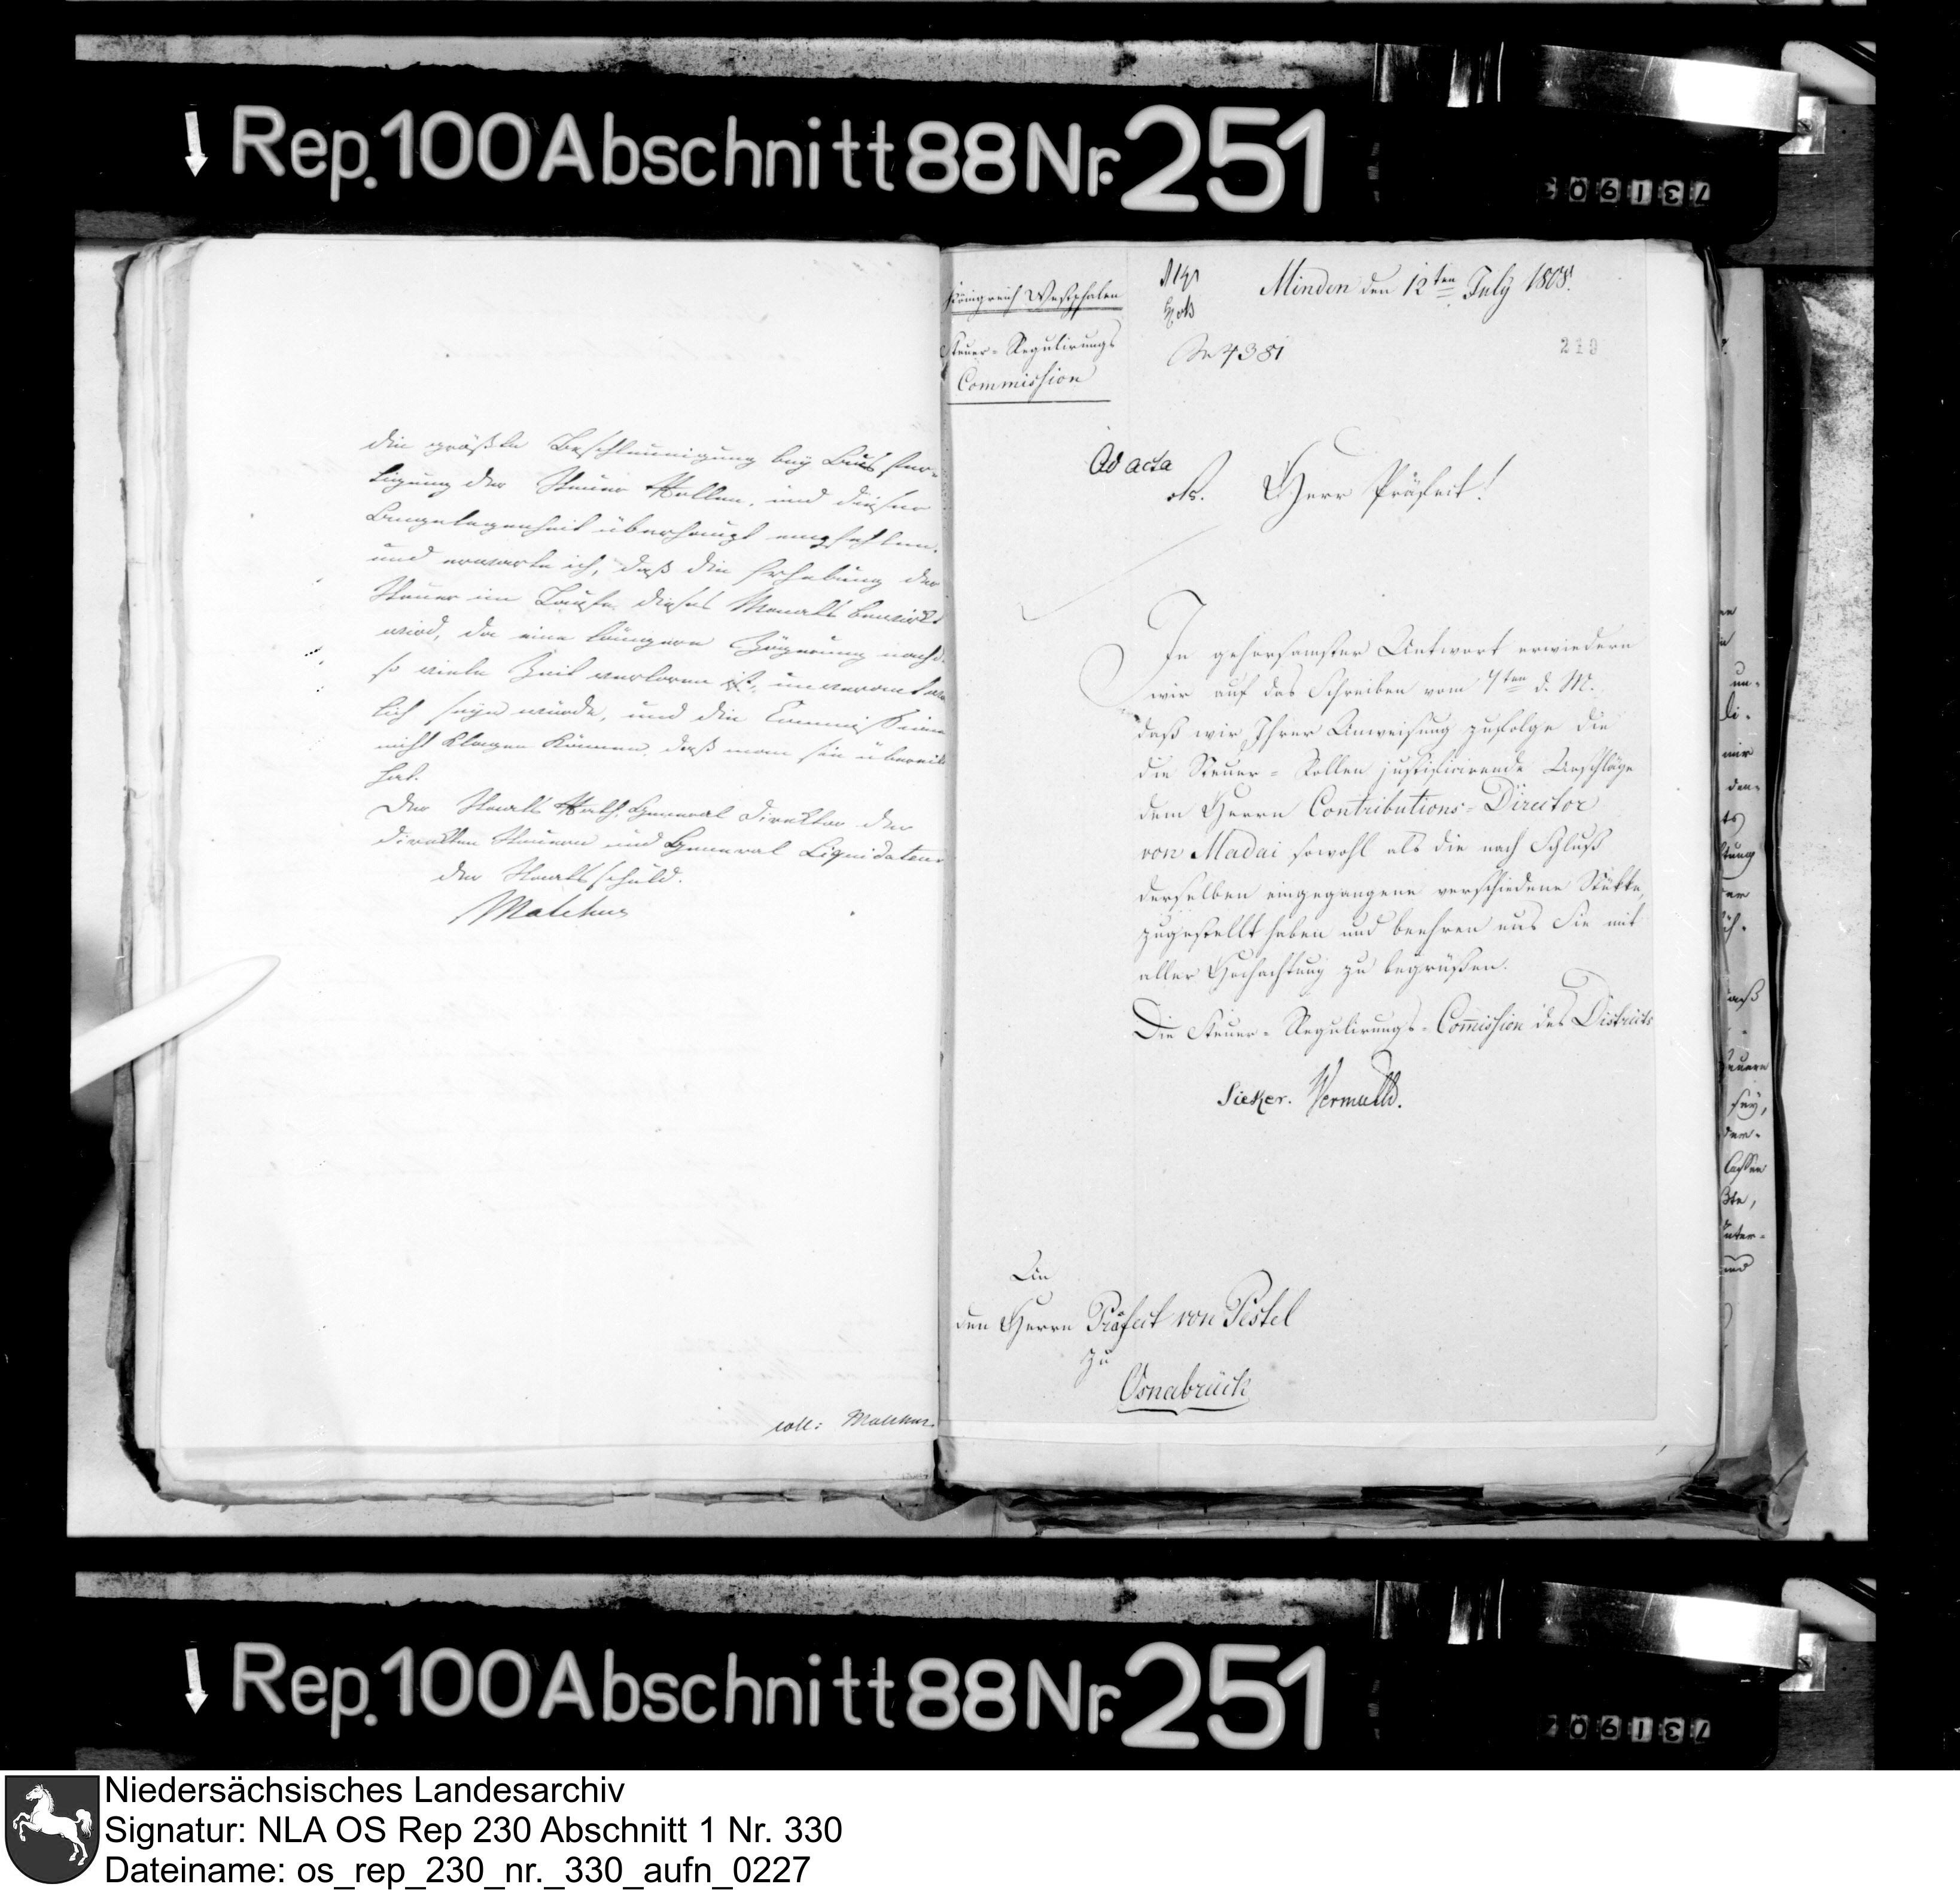 Rep. 100 Abschnitt 88 Nr. 251
die größte Beschleunigung bey Aus fer-
tigung der Steuer Rollen, und dieser
Angelegenheit überhaupt empfehlen,
und erwarte ich, daß die Erhebung der
Steuer im Laufe dieses Monats bewirkt
wird, da eine längere Zögerung nachd.
so viele Zeit verloren ist, unverantw
lich seyn würde, und die Commissionen
nicht klagen können, daß man sie übereilt
hat.
Der Staats Rath, General Direktor der
direkten Steuern und General Liquidateur
der Staatsschuld.
Malchus
coll: Malchus
Königreich Westphalen
Steuer-Regulirungs
Commission
Minden den 12ten July 1808.
No 4381
219
Ad acta
Herr Präfect!
In gehorsamster Antwort erwiedern
wir auf das Schreiben vom 7ten d. M.
daß wir Ihrer Anweisung zufolge die
die Steuer-Rollen justificirende Anschläge
dem Herrn Contributions-Director
von Madai sowohl als die nach Schluß
derselben eingegangene verschiedene Stükke,
zugestellt haben und beehren uns Sie mit
aller Hochachtung zu begrüßen.
Die Steuer-Regulirungs-Commission des Districts
Sieker.
An
den Herrn Präfect von Pestel
zu
Osnabrück
Rep. 100 Abschnitt 88 Nr. 251
Niedersächsisches Landesarchiv
Signatur: NLA OS Rep 230 Abschnitt 1 Nr. 330
Dateiname: os_rep_230_nr._330_aufn_0227